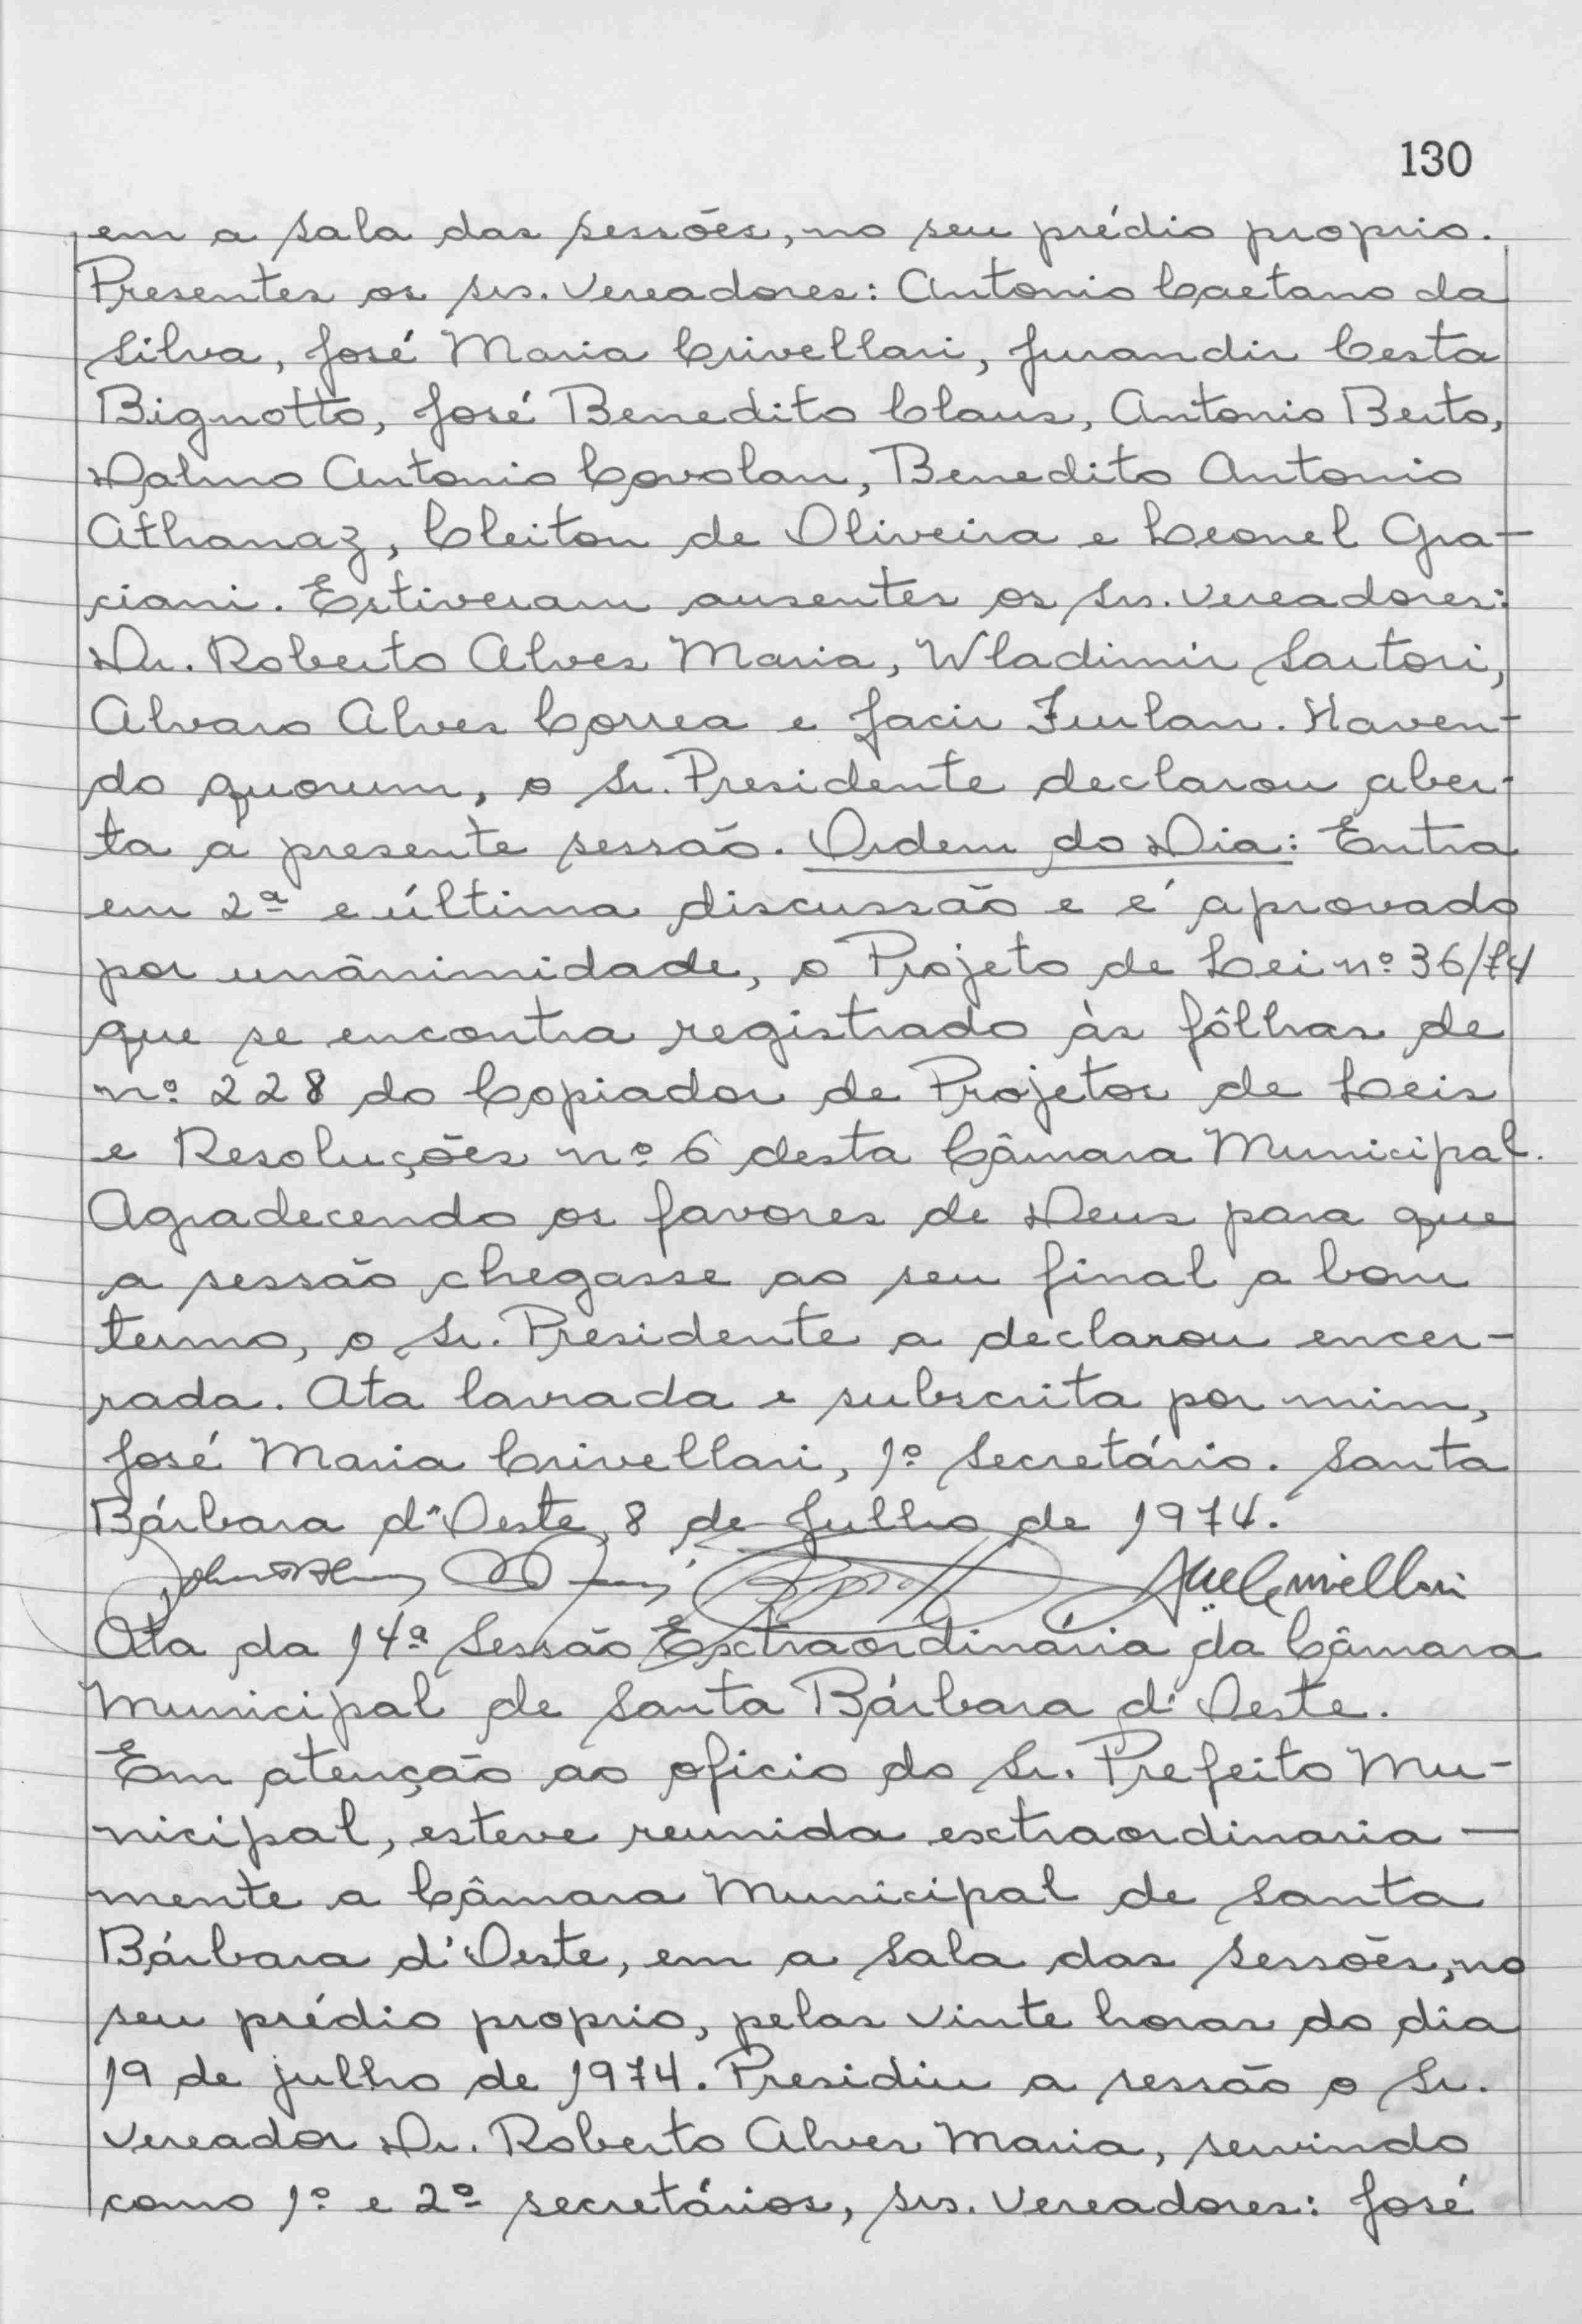 130
em a sala das sessões, no seu prédio proprio.
Presentes os srs. vereadores: Antonio Caetano da
Silva, José Maria Crivellari, Jurandir Cesta
Bignotto, José Benedito Claus, Antonio Berto,
Dalmo Antonio Covolan, Benedito Antonio
Athanaz, Cleiton de Oliveira e Leonel Gra-
ciani. Estiveram ausentes os srs. vereadores:
Dr. Roberto Alves Maria, Wladimir Sartori,
Alvaro Alves Correa e Jacir Furlan. Haven-
do quorum, o Sr. Presidente declarou aber-
ta a presente sessão. Ordem do Dia: Entra
em 2ª e última discussão e é aprovado
por unânimidade, o Projeto de Lei nº 36/74
que se encontra registrado às fôlhas de
nº 228 do Copiador de Projetos de Leis
e Resoluções nº 6 desta Câmara Municipal.
Agradecendo os favores de Deus para que
a sessão chegasse ao seu final a bom
termo, o Sr. Presidente a declarou encer-
rada. Ata lavrada e subscrita por mim,
José Maria Crivellari, 1º Secretário. Santa
Bárbara d'Oeste, 8 de Julho de 1974.
Crivellari
Ata da 14ª Sessão Extraordinária da Câmara
Municipal de Santa Bárbara d'Oeste.
Em atenção ao oficio do Sr. Prefeito Mu-
nicipal, esteve reunida extraordinaria-
mente a Câmara Municipal de Santa
Bárbara d'Oeste, em a sala das sessões, no
seu prédio proprio, pelas vinte horas do dia
19 de julho de 1974. Presidiu a sessão o Sr.
vereador Dr. Roberto Alves Maria, servindo
como 1º e 2º secretários, srs. vereadores: José